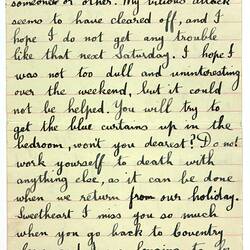 someone or other. My bilious attack
seems to have cleared off, and I
hope I do not get any trouble
like that next Saturday. I hope I
was not too dull and uninteresting
over the weekend, but it could
not be helped. You will try to
get the blue curtains up in the
bedroom, won't you dearest? Do not
work yourself to death with
anything else, as it can be done
when we return from our holiday.
Sweetheart I miss you so much
when you go back to Coventry